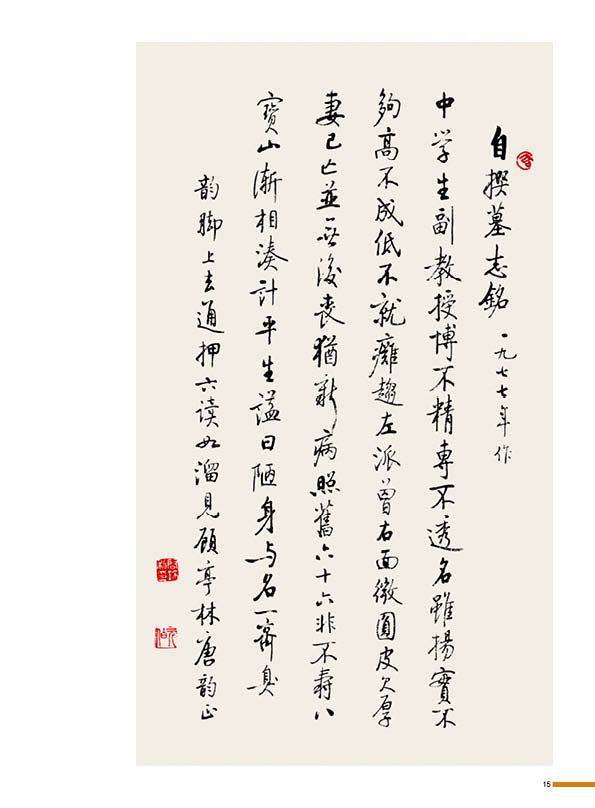 自撰墓志銘 一九七七年作
中学生副教授博不精專不透名雖揚實不
夠高不成低不就癱趨左派曾右面微圓皮欠厚
妻已亡並無後喪猶新病照舊六十六非不壽八
寶山漸相湊計平生謚曰陋身与名一齊臭
韵脚上去通押六读如溜見顧亭林唐韵正
15